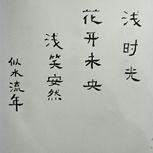 浅时光
花开未央
浅笑安然
似水流年